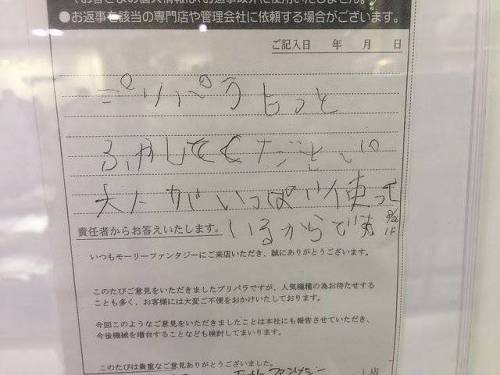 ●お返事を該当の専門店や管理会社に依頼する場合がございます。
ご記入日 年 月 日
プリパラもっと
ふやしてください
大人がいっぱい使って
いるからです
責任者からお答えいたします。
いつもモーリーファンタジーにご来店いただき、誠にありがとうございます。
このたびご意見をいただきましたプリパラですが、人気機種の為お待たせする
ことも多く、お客様には大変ご不便をおかけいたしております。
今回このようなご意見をいただきましたことは本社にも報告させていただき、
今後機械を増台することなども検討してまいります。
このたびは貴重なご意見ありがとうございました。
店